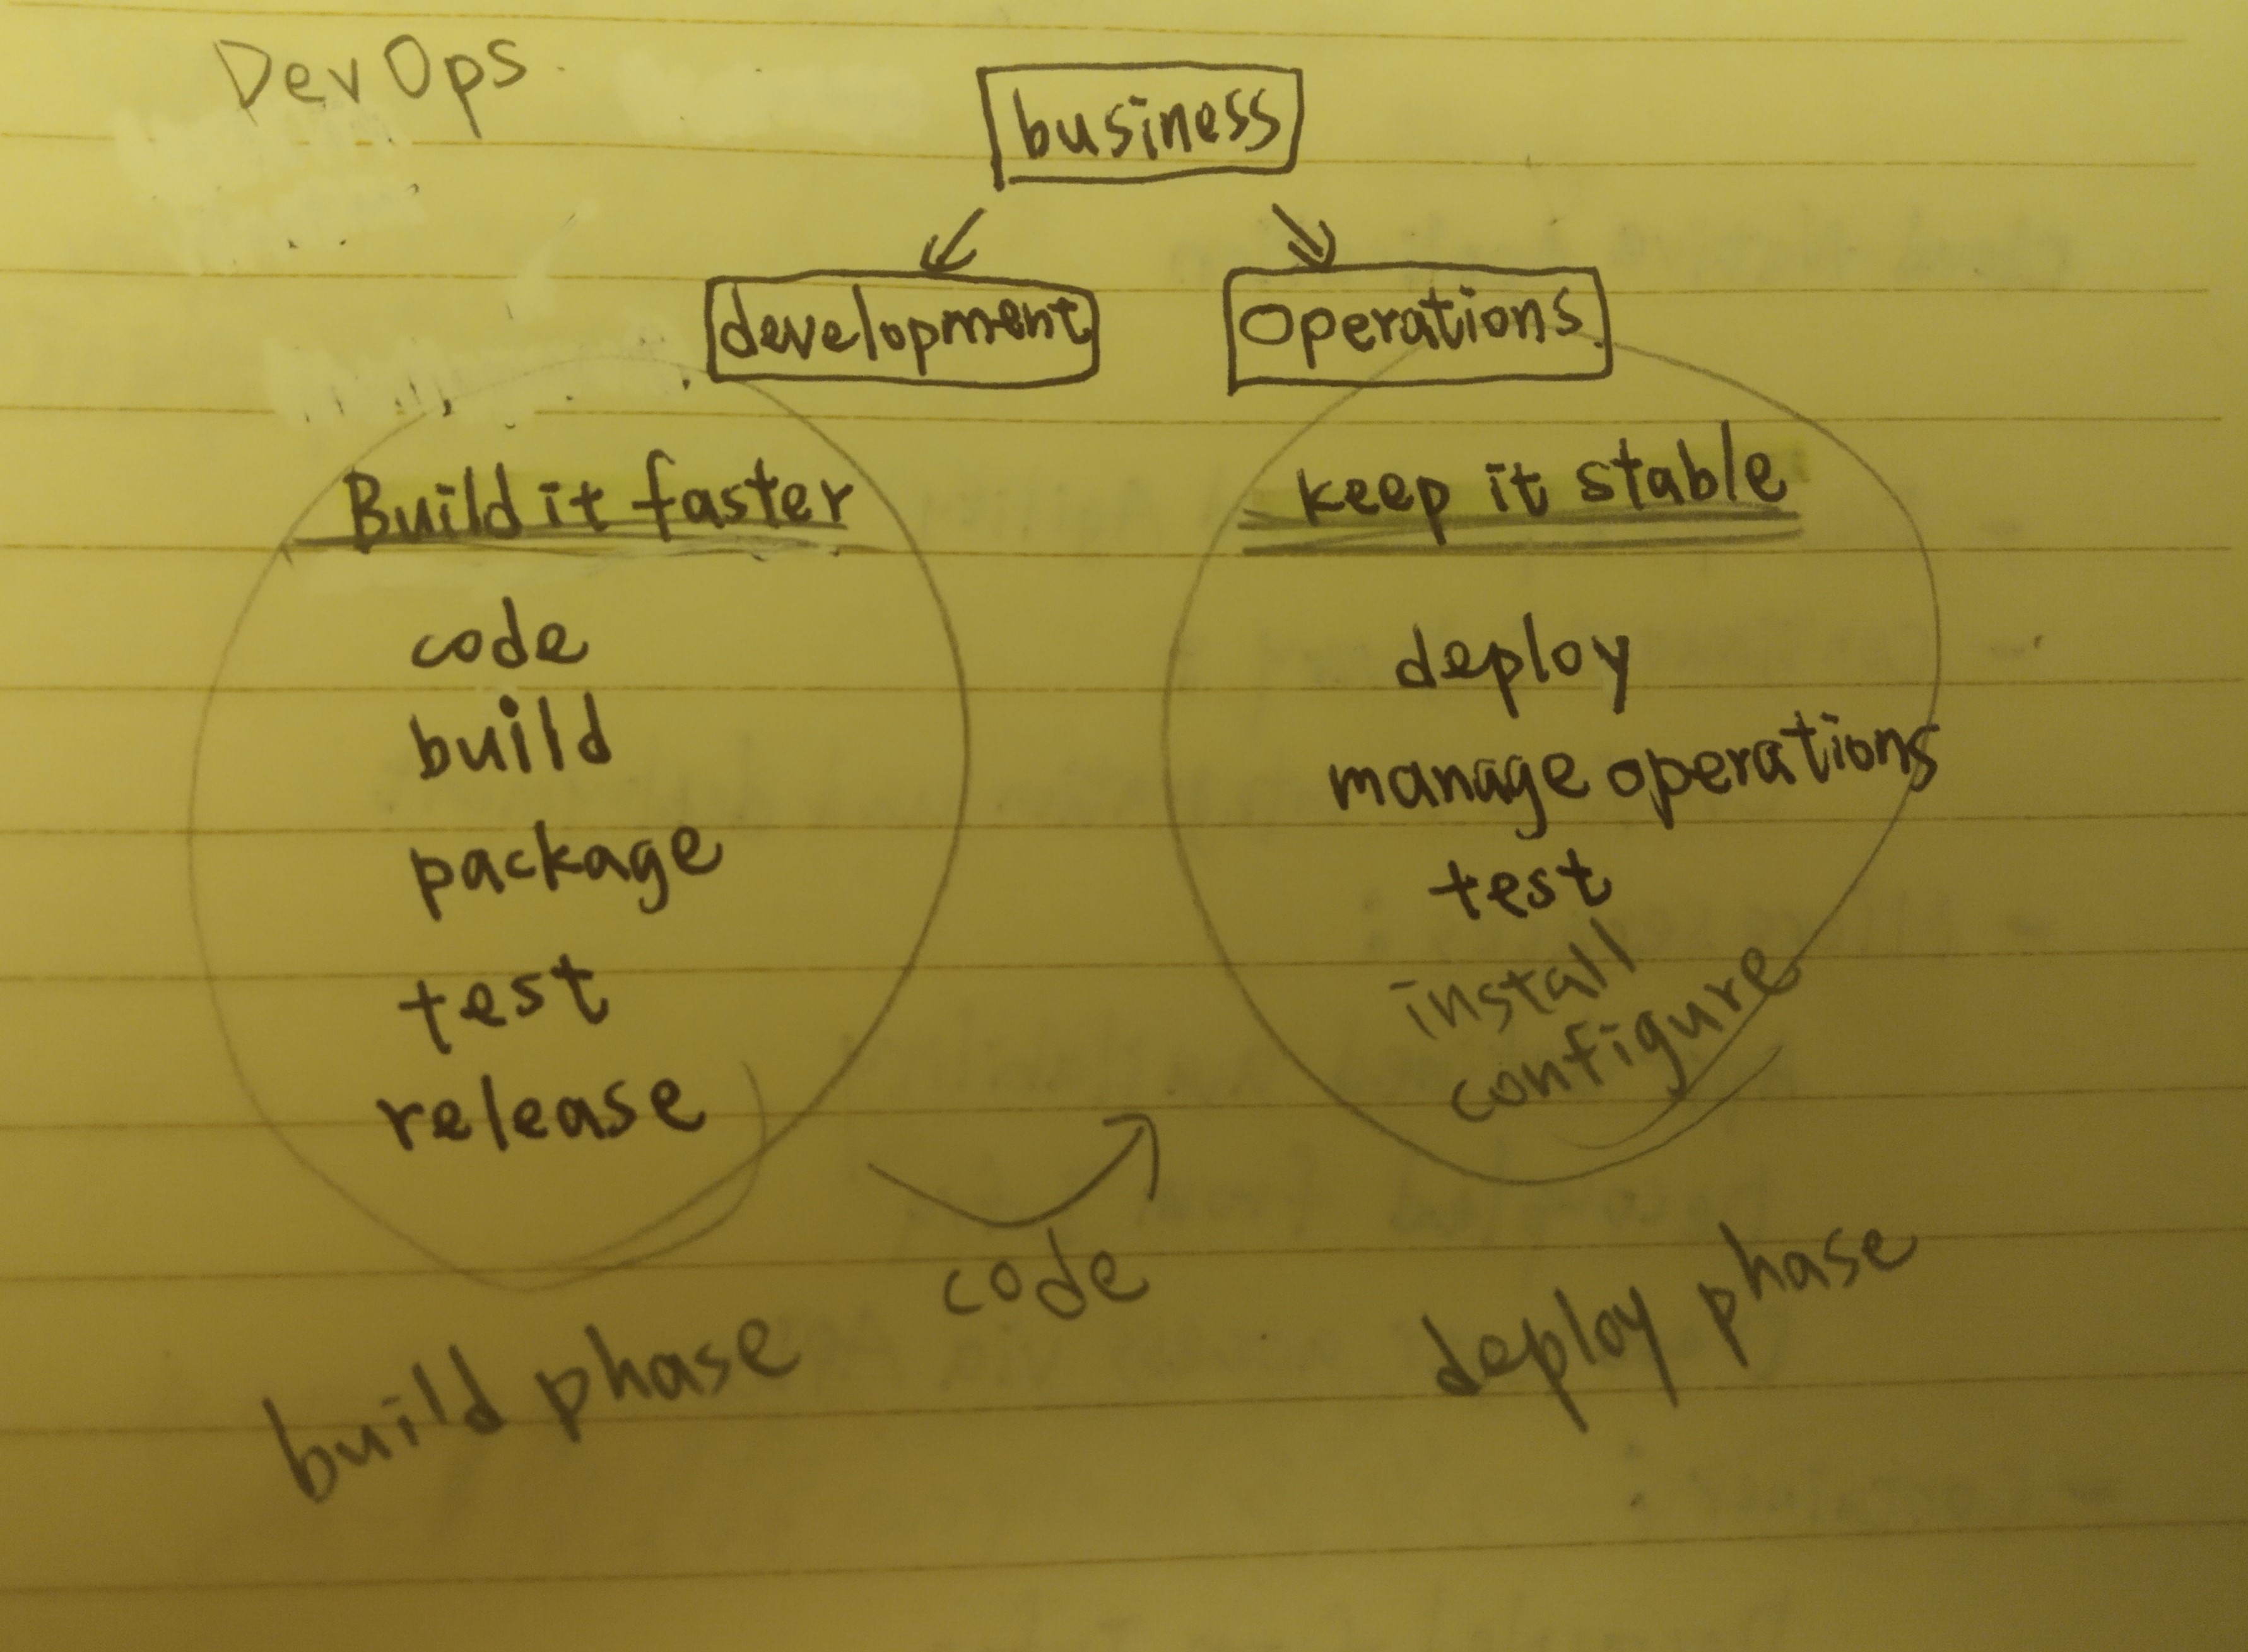 DevOps
business
development
Operations
Build it faster
code
build
package
test
release
keep it stable
deploy
manage operations
test
install
configure
code
build phase
deploy phase